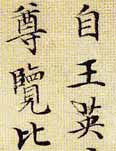 自王英
尊覽比